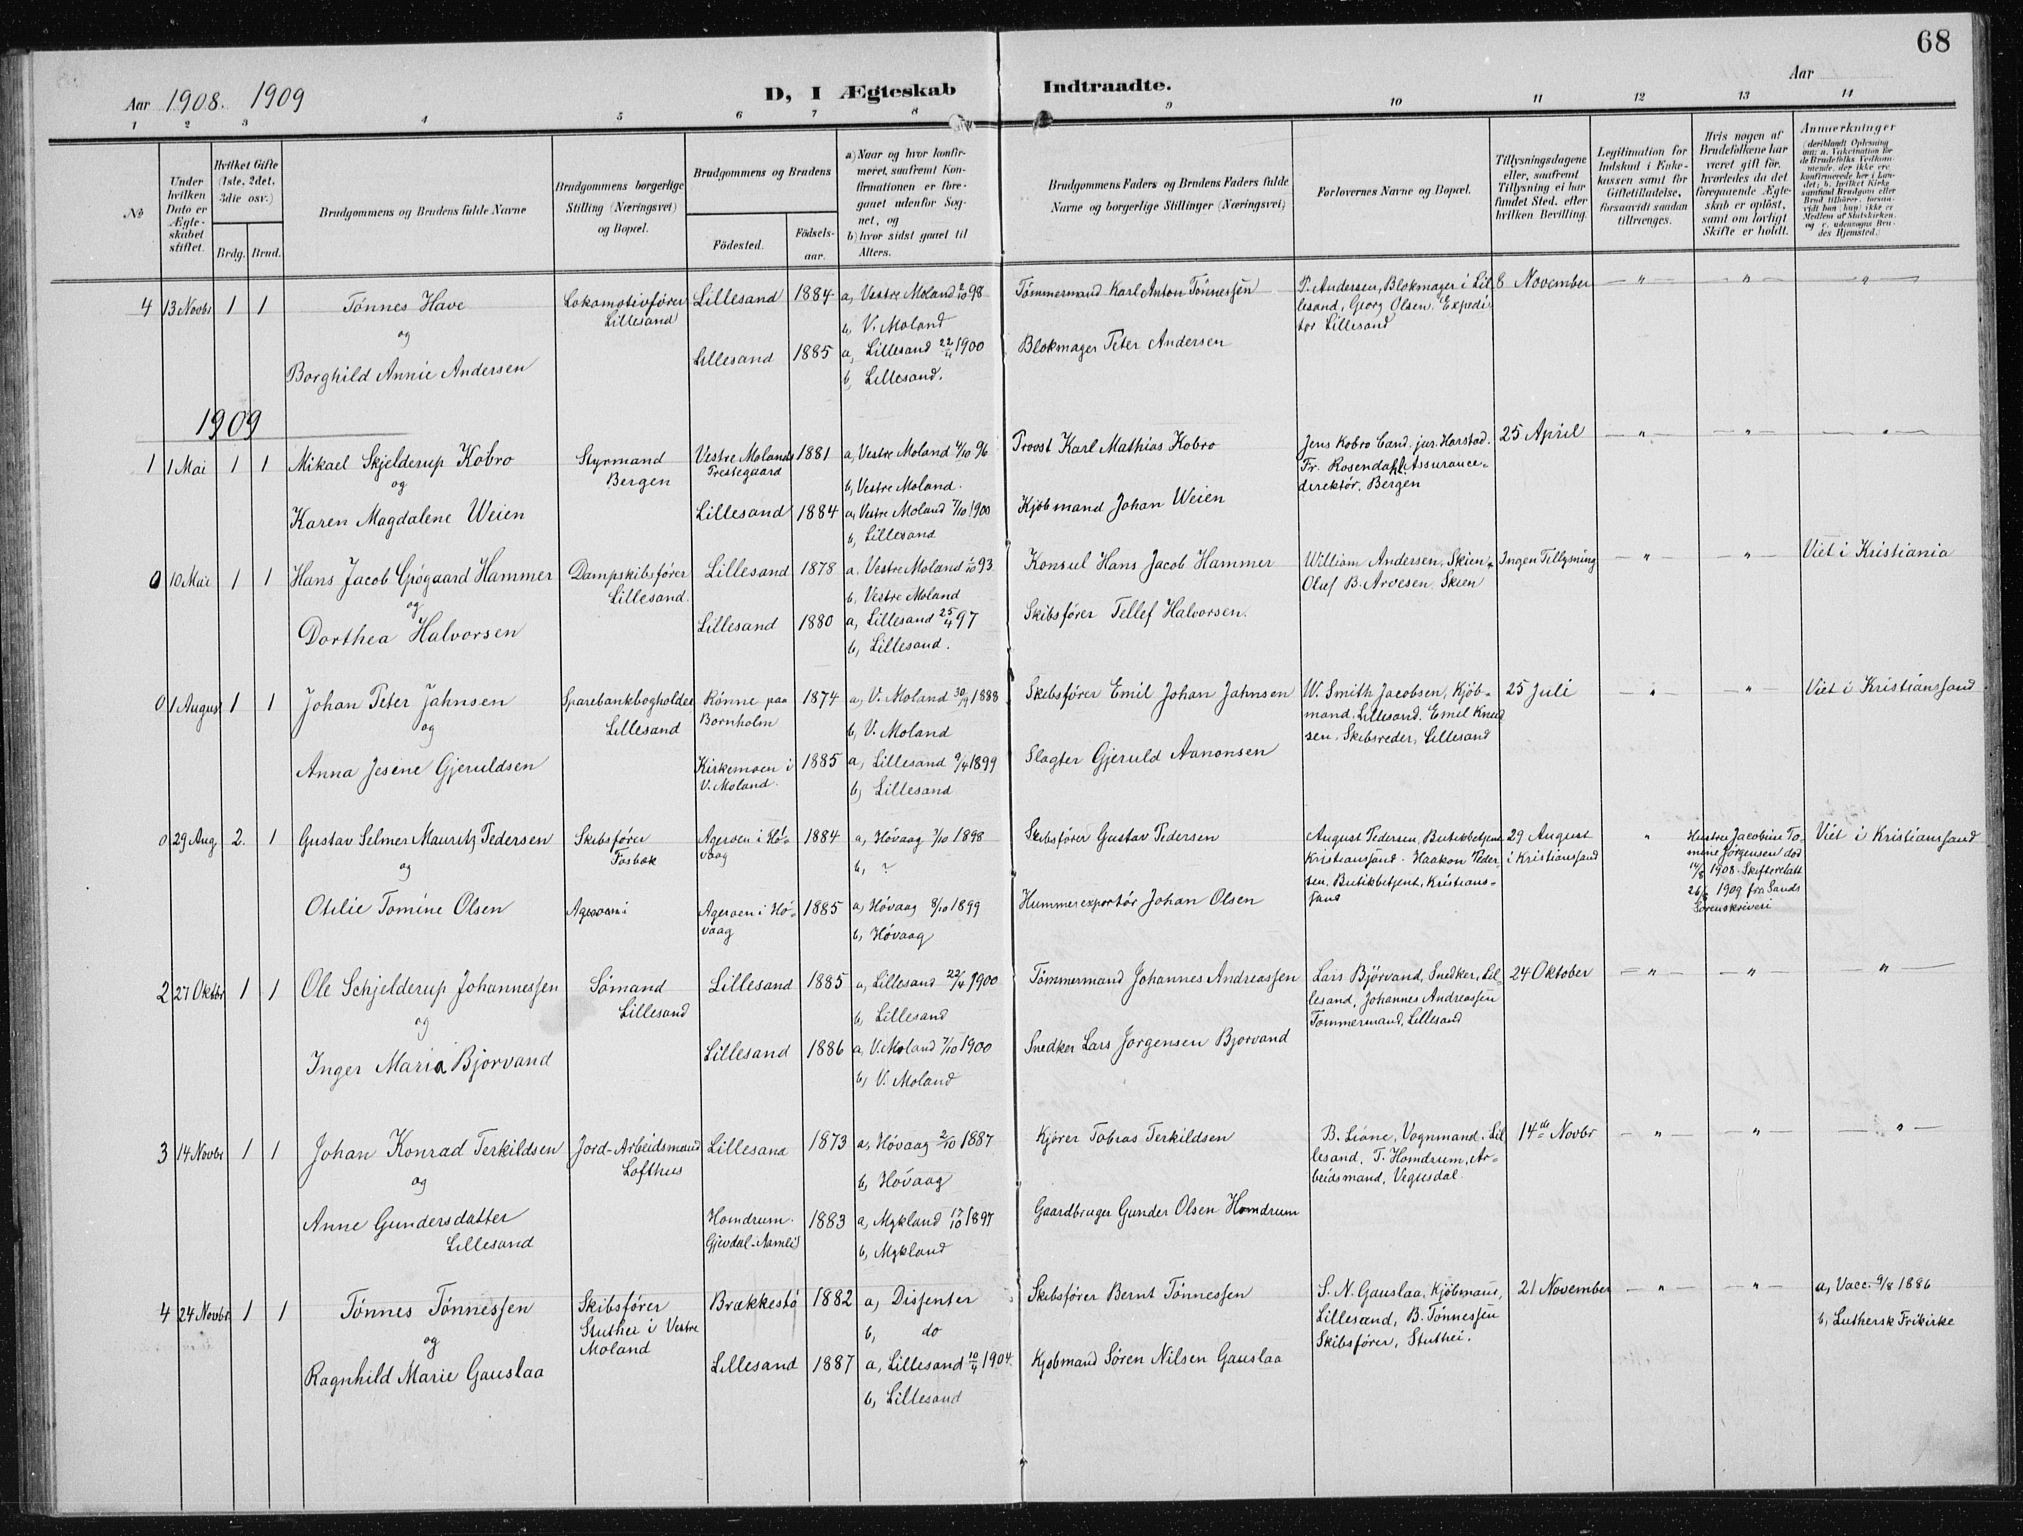 68
Aar 1908. 1909
D, I Ægteskab Indtraadte.
Aar
1 2 3 4 5 6 7 8 9 10 11 12 13 14
№
Under hvilken Dato er Ægteskabet stiftet.
Hvilket Gifte (1ste, 2det, 3die osv.)
Brdg. Brud.
Brudgommens og Brudens fulde Navne
Brudgommens borgerlige Stilling (Næringsvei) og Bopæl.
Brudgommens og Brudens
Födested.
Födsels-aar.
a) Naar og hvor konfirmeret, saafremt Konfirmationen er foregaaet udenfor Sognet, og
b) hvor sidst gaaet til Alters.
Brudgommens Faders og Brudens Faders fulde Navne og borgerlige Stillinger (Næringsvei)
Forlovernes Navne og Bopæl.
Tillysningsdagene eller, saafremt Tillysning ei har fundet Sted, efter hvilken Bevilling.
Legitimation for Indskud i Enkekassen samt for Giftetilladelse, forsaavidt saadan tiltrænges.
Hvis nogen af Brudefolkene har været gift för, hvorledes da det foregaaende Ægteskab er oplöst, samt om lovligt Skifte er holdt.
Anmerkninger
4 13 Novbr 1 1 Tönnes Have Lokomotivförer Lillesand Lillesand 1884 a, Vestre Moland 2/10 98 b, V. Moland Tömmermand Karl Anton Tönnessen P. Andersen, Blokmager i Lillesand, Georg Olsen, Expeditor Lillesand 8 November " " "
og
Borghild Annie Andersen Lillesand 1885 a, Lillesand 22/4 1900 b, Lillesand. Blokmager Peter Andersen
1909
1 1 Mai 1 1 Mikael Skjelderup Kobro Styrmand Bergen Vestre Molands Prestegaard 1881 a, Vestre Moland 4/10 96 b, Vestre Moland. Provst Karl Mathias Kobro Jens Kobro Cand. jur. Harstad. Fr. Rosendahl Assurancedirektör, Bergen 25 April " " "
og
Karen Magdalene Weien Lillesand 1884 a, Vestre Moland 7/10 1900 b, Lillesand Kjöbmand Johan Weien
0 10 Mai 1 1 Hans Jacob Hammer Dampskibsförer Lillesand. Lillesand 1878 a, Vestre Moland 1/10 93 b, Vestre Moland Konsul Hans Jacob Hammer William Andersen, Skien, Oluf B. Arvesen, Skien Ingen Tillysning " " Viet i Kristiania
og
Dorthea Halvorsen Lillesand 1880 a, Lillesand 25/4 97 b, Lillesand. Skibsförer Tellef Halvorsen.
0 1 August 1 1 Johan Peter Jahnsen Sparebankbogholder Lillesand Rönne paa Bornholm 1874 a, V. Moland 30/9 1888 b, V. Moland Skibsförer Emil Johan Jahnsen W. Smith Jacobsen, Kjöbmand, Lillesand. Emil Knudsen, Skibsreder, Lillesand 25 Juli " " Viet i Kristianssand
og
Anna Jesene Gjeruldsen Kirkemoen i V. Moland. 1885 a, Lillesand 9/4 1899 b, Lillesand Slagter Gjeruld Aanonsen
0 29 Aug 2. 1 Gustav Selmer Mauritz Pedersen Skibsförer Fosbæk Ageroen i Hövaag 1884 a, Hövaag 2/10 1898 b, ? Skibsförer Gustav Pedersen August Pedersen, Butikbetjent Kristianssand. Haakon Pedersen, Butikbetjent, Kristianssand 29 August i Kristianssand " Hustru Jacobine Tomine Jörgensen död 14/8 1908. Skifteratt 26/8 1909 fra Sands Sorenskriveri Viet i Kristianssand
og
Otilie Tomine Olsen Ageroen i Ageroen i Hövaag 1885 a, Hövaag 8/10 1899 b, Hövaag Hummerexportör Johan Olsen
2 27 Oktbr 1 1 Ole Schjelderup Johannessen Sömand Lillesand Lillesand 1885 a, Lillesand 22/4 1900 b, Lillesand Tömmermand Johannes Andreassen Lars Björvand, Snedker, Lillesand, Johannes Andreassen Tömmermand, Lillesand 24 Oktober " " "
og
Inger Maria Bjorvand Lillesand 1886 a, V. Moland 7/10 1900 b, V. Moland Snedker Lars Jorgensen Bjorvand
3 14 Novbr 1 1 Johan Konrad Terkildsen Jord-Arbeidsmand Lofthus Lillesand 1873 a, Hövaag 2/10 1887 b, Hövaag Kjörer Tobias Terkildsen B. Lione, Vognmand, Lillesand, T. Homdrum, Arbeidsmand, Vegusdal. 14de Novbr " " "
og
Anne Gundersdatter Lillesand Homdrum. Gjevdal-Aamli 1883 a, Mykland 17/10 1897 b, Mykland Gaardbruger Gunder Olsen Homdrum
4 24 Novbr. 1 1 Tönnes Tönnessen Skibsförer Stuthei i Vestre Moland Brækkestö 1882 a, Dissenter b, do Skibsförer Bernt Tönnessen S. N. Gauslaa, Kjöbmand, Lillesand, B. Tönnessen Skibsförer, Stuthei. 21 November " " a, Vacc. 9/8 1886 b, Luthersk Frikirke
og
Ragnhild Marie Gauslaa Lillesand 1887 a, Lillesand 10/4 1904. b, Lillesand Kjöbmand Sören Nilsen Gauslaa